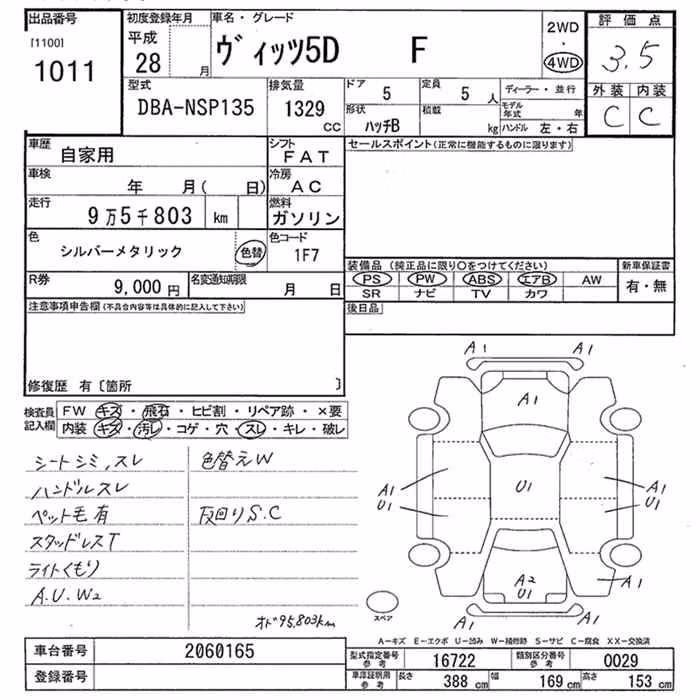 出品番号
[1100]
1011
初度登録年月
平成
28 月
車名・グレード
ヴィッツ5D F
2WD
・
4WD
評価点
3.5
外装 内装
C C
型式
DBA-NSP135
排気量
1329
CC
ドア
5
定員
5 人
形状
ハッチB
積載
kg
ディーラー・並行
モデル
年式 年
ハンドル 左・右
車歴
自家用
シフト
FAT
車検
年 月( 日)
冷房
AC
走行
9万5千803 km
燃料
ガソリン
色
シルバーメタリック
色替
色コード
1F7
R券
9,000 円
名変通知期限
月 日
セールスポイント(正常に機能するものに限ります)
装備品 (純正品に限り〇をつけてください)
PS PW ABS エアB AW
SR ナビ TV カワ
新車保証書
有・無
後日品
注意事項申告欄(不具合内容等は具体的に記入して下さい)
修復歴 有〔箇所 〕
検査員
記入欄
FW キズ・飛石・ヒビ割・リペア跡・×要
内装 キズ・汚レ・コゲ・穴・スレ・キレ・破レ
シートシミ,スレ
ハンドルスレ
ペット毛有
スタッドレスT
ライトくもり
A.U.W2
色替えW
下回りS.C
オド95,803km
A1 A1
A1
A1
U1
U1
A1
U1
A2
U1
A1
A1 A1
スペア
A-キズ E-エクボ U-凹み W-補修跡 S-サビ C-腐食 XX-交換済
車台番号
2060165
登録番号
型式指定番号
参考
16722
類別区分番号
参考
0029
車庫証明用
参考
長さ
388 cm
幅
169 cm
高さ
153 cm